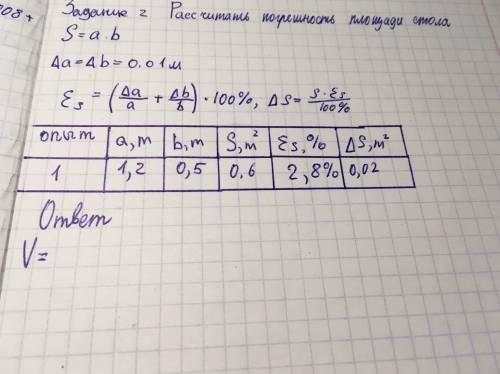 Задание 2 Рассчитать погрешность площади стола
S = a · b
Δa = Δb = 0.01 м
Ɛs = (Δa/a + Δb/b) · 100%, ΔS = S · Ɛs/100%
опыт a, m b, m S, m² Ɛs, % ΔS, m²
1 1,2 0,5 0,6 2,8% 0,02
Ответ
V =